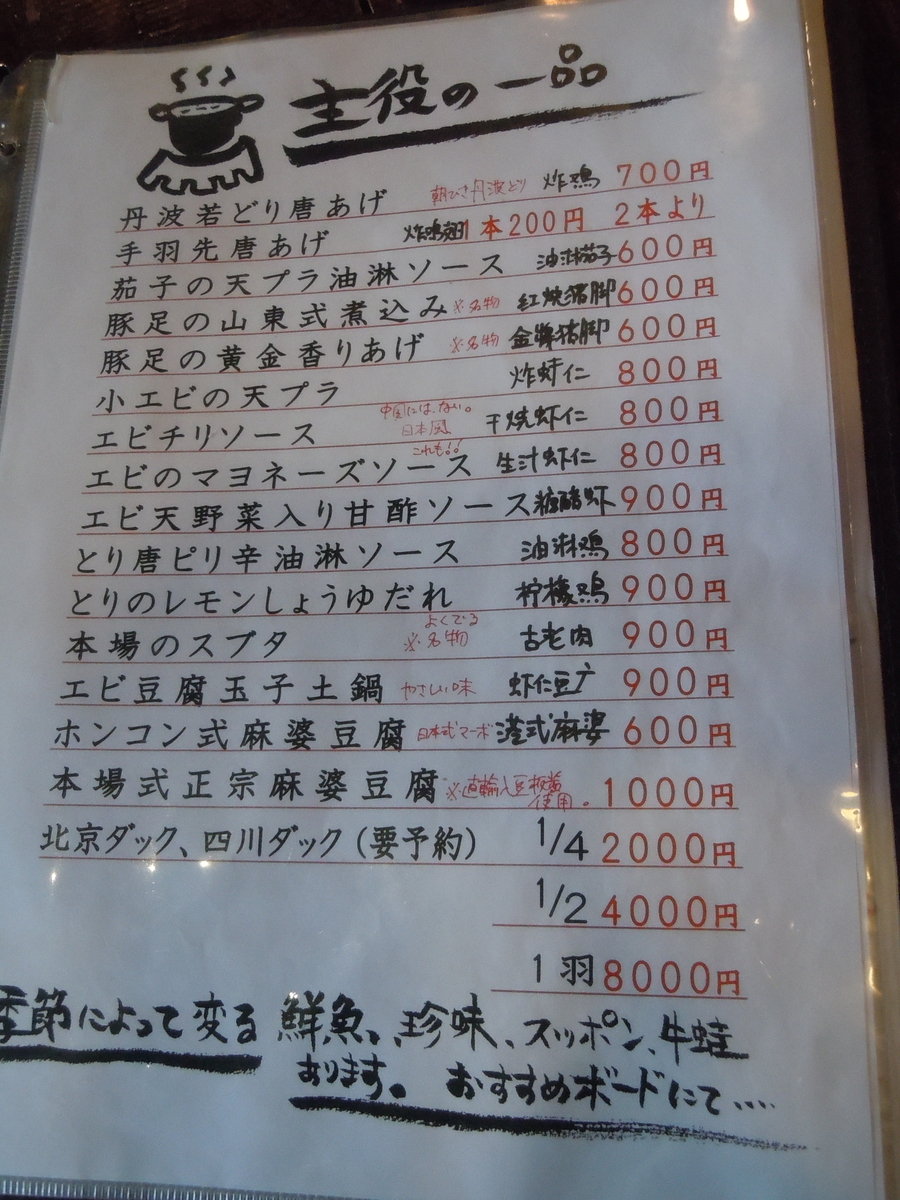 主役の一品
丹波若どり唐あげ 朝びき丹波どり 炸鶏 700円
手羽先唐あげ 炸鳴翅 1本200円 2本より
茄子の天プラ油淋ソース 油淋茄子 600円
豚足の山東式煮込み ※名物 紅焼猪脚 600円
豚足の黄金香りあげ ※名物 金牌猪脚 600円
小エビの天プラ 炸虾仁 800円
エビチリソース 中国には、ない。日本風 干焼虾仁 800円
エビのマヨネーズソース これも!! 生汁虾仁 800円
エビ天野菜入り甘酢ソース 糖醋虾 900円
とり唐ピリ辛油淋ソース 油淋鶏 800円
とりのレモンしょうゆだれ 柠檬鶏 900円
本場のスブタ よくでる ※名物 古老肉 900円
エビ豆腐玉子土鍋 やさしい味 虾仁豆广 900円
ホンコン式麻婆豆腐 日本式マーボ 港式麻婆 600円
本場式正宗麻婆豆腐 ※直輸入豆板醤使用. 1000円
北京ダック、四川ダック(要予約) 1/4 2000円
1/2 4000円
1羽 8000円
季節によって変る 鮮魚、珍味、スッポン、牛蛙
あります。 おすすめボードにて....